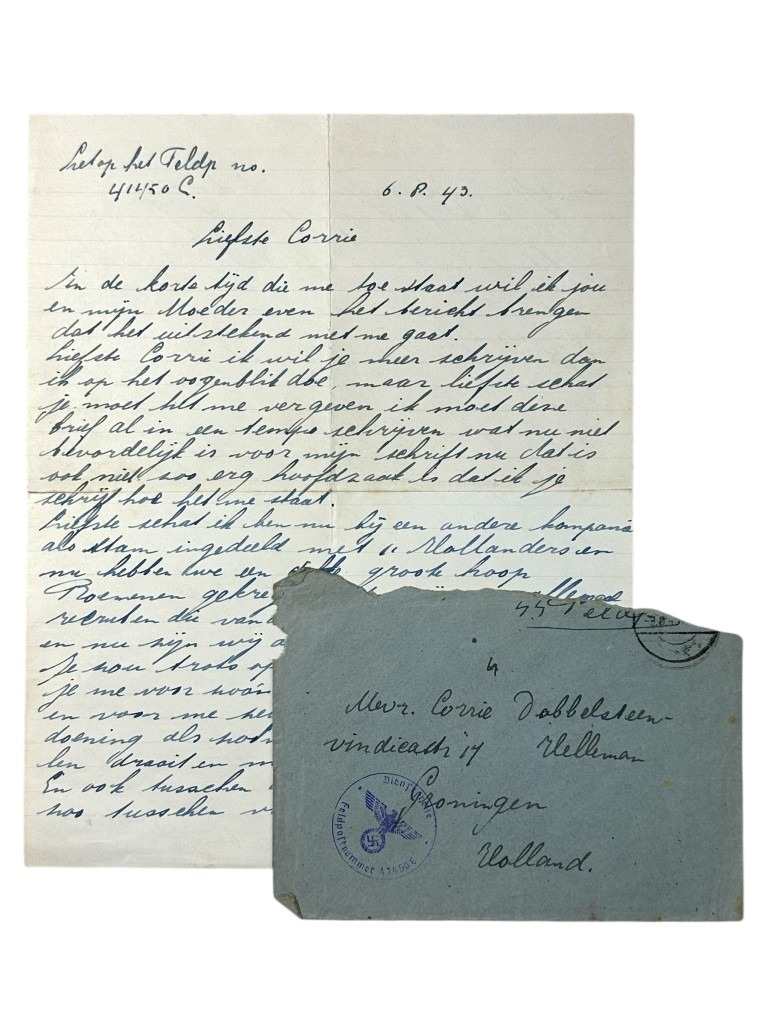 Let op het Feldp no.
41450 C.
6.8.43.
Liefste Corrie
In de korte tijd die me toe staat wil ik jou
en mijn Moeder even het bericht brengen
dat het uitstekend met me gaat.
Liefste Corrie ik wil je meer schrijven dan
ik op het oogenblik doe, maar liefste schat
je moet het me vergeven ik moet deze
brief al in een tempo schrijven wat nu niet
bevordelijk is voor mijn schrift nu dat is
ook niet zoo erg hoofdzaak is dat ik je
schrijf hoe het me staat
Liefste schat ik ben nu bij een andere kompanie
als stam ingedeeld met 11 Hollanders en
nu hebben we een groote hoop
Roemenen gekre
recruten die van
en nu zijn wij
Je zou trots op
je me voor
en voor me
doening als
len draait en m
En ook tusschen
zoo tusschen v
SS Feldp
Mevr. Corrie Dobbelsteen-
vindicatstr 17 Helleman
Groningen
Holland.
Dienststelle
Feldpostnummer 41450 C